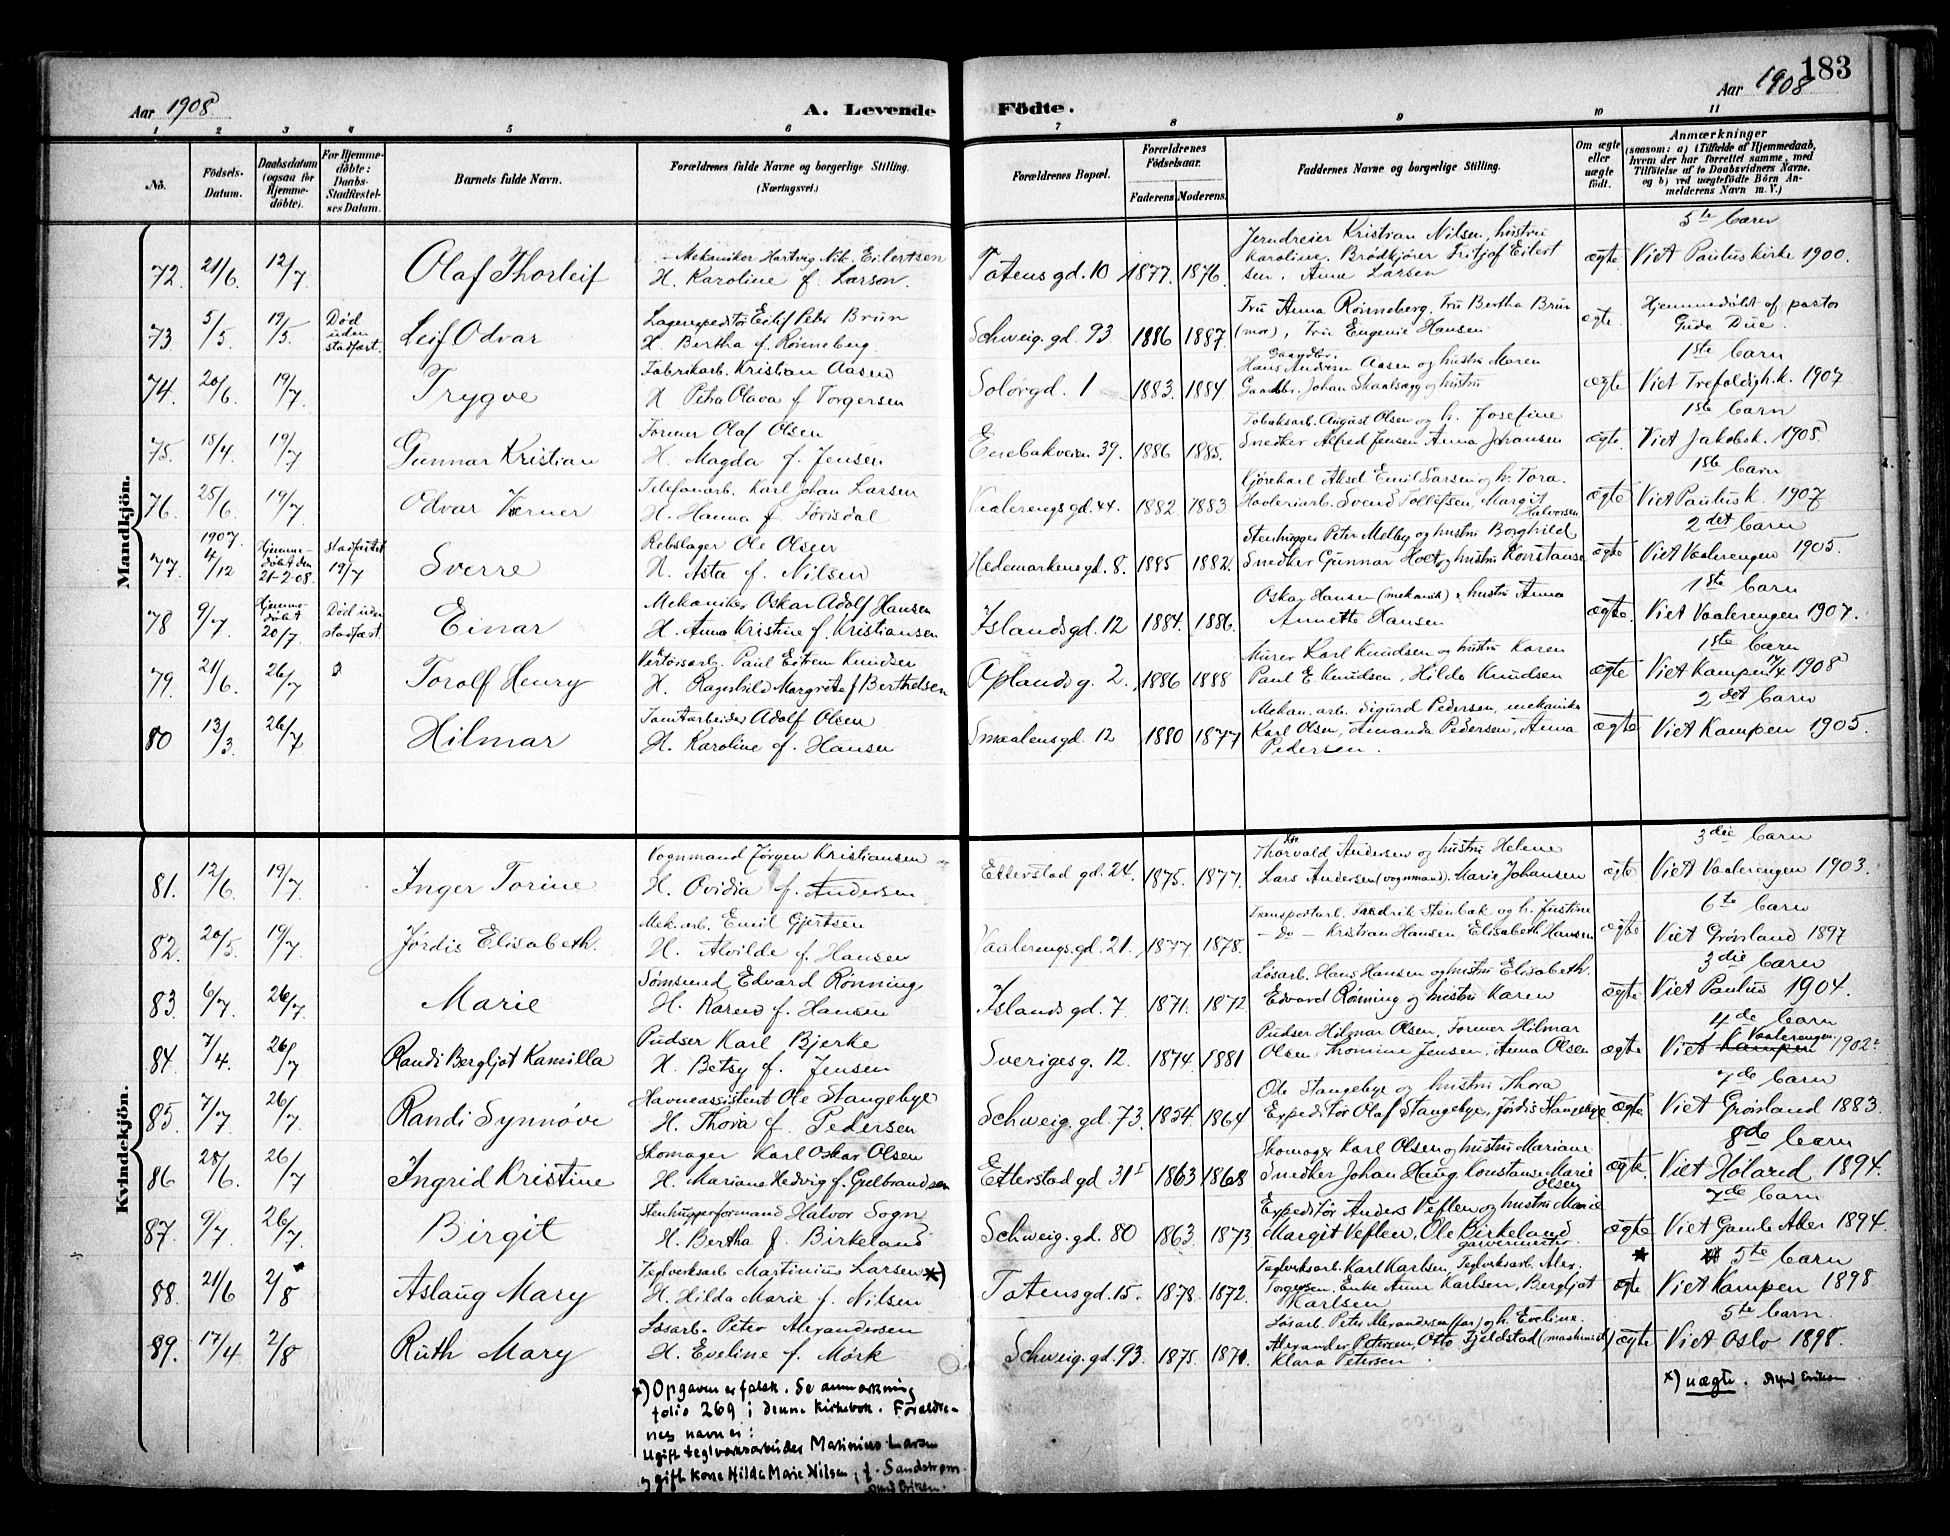 183
Aar 1908.
A. Levende Födte.
Aar 1908
1 2 3 4 5 6 7 8 9 10 11
No.
Födsels-Datum.
Daabsdatum (ogsaa for Hjemme-döbte).
For Hjemme-döbte: Daabs-Stadfæstel-ses Datum.
Barnets fulde Navn.
Forældrenes fulde Navne og borgerlige Stilling. (Næringsvei.)
Forældrenes Bopæl.
Forældrenes Födselsaar.
Faderens Moderens.
Faddernes Navne og borgerlige Stilling.
Om ægte eller uægte födt.
Anmærkninger (saasom: a) i Tilfælde af Hjemmedaab, hvem der har forrettet samme, med Tilföielse af to Daabsvidners Navne, og b) ved uægtefödte Börn An-melderens Navn m. V.)
Mandkjön.
5te barn
72. 21/6. 12/7 Olaf Thorleif
Mekaniker Hartvig Nik. Eilertsen
H. Karoline f. Larson.
Totens gd. 10 1877. 1876.
Jerndreier Kristian Nilsen, hustru
Karoline. Brödkjörer Fritjof Eilert
sen. Anna Larsen
ægte. Viet Pauluskirke 1900.
73 5/5. 19/5. Död uden stadfæst. Leif Odvar
Lagerexpeditör Eilif Peter Brun
H. Bertha f. Rønneberg.
Schweig. gd. 93 1886 1887.
Fru Anna Rønneberg, Fru Bertha Brun
(mor), Fru Eugenie Hansen
ægte. Hjemmedöbt af pastor
Gude Due.
1ste barn
74. 20/6. 19/7. Trygve
Fabrikarb. Kristian Aasen
H. Petra Olava f. Torgersen
Solörgd. 1 1883. 1884
Hans Andersen Aasen og hustru Maren
Gaardbr. Johan Skaalsæg og hustru
ægte Viet Trefoldigh.k. 1907
1ste barn
75. 15/4. 19/7 Gunnar Kristian
Former Olaf Olsen
H. Magda f. Jensen
Enebakveien 39. 1886 1885.
Tobaksarb. August Olsen og h. Josefine
Snedker Alfred Jensen Anna Johansen
ægte. Viet Jakobsk. 1908.
1ste barn
76. 25/6. 19/7 Odvar Verner
Telefonarb. Karl Johan Larsen
H. Hanna f. Förisdal
Vaalerengs gd. 44. 1882 1883
Kjörekarl Aksel Emil Larsen og h. Tora.
Svend Tollefsen, Margit
Halvorsen
ægte Viet Paulusk. 1907
2det barn
77. 1907. 4/12 Hjemme-döbt den 21-2-08. stadfæstet 19/7 Sverre
Rebslager Ole Olsen
H. Asta f. Nilsen
Hedemarkens gd. 8. 1885 1882.
Stenhugger Peter Melby og hustru Borghild
Snedker Gunnar Holt og hustru Konstanse
ægte Viet Vaalerengen 1905.
1ste barn
78 9/7. Hjemme-döbt 20/7. Död uden stadfæst. Einar
Mekaniker Oskar Adolf Hansen
H. Anna Kristine f. Kristiansen
Islands gd. 12 1884. 1886.
Oskar Hansen (mekanik), hustru Anna
Annette Hansen
ægte. Viet Vaalerengen 1907.
1ste barn
79. 21/6. 26/7 Torolf Henry
Paul Eitrem Knudsen
H. Ragnhild Margrete f Berthelsen
Oplands g. 2. 1886 1888
Murer Karl Knudsen og hustru Karen
Paul E. Knudsen, Hilda Knudsen
ægte Viet Kampen 1908
2det barn
80 13/3. 26/7 Hilmar
Tomtarbeider Adolf Olsen
H. Karoline f. Hansen
Smaalens gd. 12 1880 1877
Mekan. arb. Sigurd Pedersen, mekaniker
Karl Olsen, Amanda Pedersen, Anna
Pedersen.
ægte Viet Kampen 1905.
Kvindekjön.
3die barn
81. 12/6. 19/7 Inger Torine
Vognmand Jörgen Kristiansen
H. Ovidia f. Andersen
Etterstad gd. 24. 1875. 1877.
Thorvald Andersen og hustru Helene
Lars Andersen (vognmand). Marie Johansen
ægte Viet Vaalerengen 1903.
6te barn
82. 20/5. 19/7. Jørdis Elisabeth.
Mek. arb. Emil Gjertsen
H. Alvilde f. Hansen
Vaalerengs gd. 21. 1877 1878.
Transportarb. Fredrik Stenbak og h. Justine
— do — Kristian Hansen Elisabeth Hansen
ægte Viet Grønland 1897
3die barn
83. 6/7. 26/7. Marie
Sömsmed Edvard Rønning
H. Karen f. Hansen
Islands gd. 7 1871. 1872
Løsarb. Hans Hansen og hustru Elisabeth.
Edvard Rønning og hustru Karen
ægte Viet Paulus 1904.
4de barn
84. 7/4. 26/7 Randi Bergljot Kamilla
Pudser Karl Bjerke
H. Betsy f. Jensen
Sveriges g. 12. 1874 1881
Pudser Hilmar Olsen, Former Hilmar
Olsen Thomine Jensen, Anna Olsen
ægte Viet Kampen Vaalerengen 1902.
7de barn
85. 7/7 26/7. Randi Synnöve
Havneassistent Ole Stangebye
H. Thora f. Pedersen
Schweig. gd. 73. 1854. 1864
Ole Stangebye og hustru Thora
Expeditör Olaf Stangebye, Jørdis Stangebye
ægte. Viet Grønland 1883.
8de barn
86 28/6. 26/7 Ingrid Kristine
Skomager Karl Oskar Olsen
H. Mariane Hedvig f. Gulbrandsen
Etterstad gd 31I 1863 1868
Skomager Karl Olsen og hustru Mariane
Snedker Johan Haug Konstanse Marie
Olsen
ægte Viet Höland 1894.
7de barn
87. 9/7 26/7. Birgit
Stenhuggerformand Halvor Sogn
H. Bertha f. Birkeland
Schweig. gd. 80 1863. 1873
Expeditör Anders Veflen og hustru Marie
Margit Veflen, Ole Birkeland
garvermester
ægte Viet Gamle Aker 1894.
* 5te barn
88. 21/6 2/8 Aslaug Mary
Teglverksarb Martinius Larsen *)
H. Hilda Marie f. Nilsen
Totens gd. 15. 1878. 1872.
Teglverksarb. Karl Karlsen, Teglverksarb. Alex.
Torgersen, Enke Anne Karlsen, Bergljot
Karlsen
ægte Viet Kampen 1898
5te barn
89. 17/4 2/8 Ruth Mary
Løsarb. Peter Alexandersen
H. Eveline f. Mörk
Schweig. gd. 93. 1875. 1871.
Løsarb. Peter Alexandersen (far) og h. Eveline.
Alexander Petersen, Otto Fjeldstad (maskinist)
Klara Petersen.
ægte Viet Oslo 1898.
*) Opgaven er falsk. Se anmerkning
folio 269 i denne kirkebok. Foreldre-
nes navn er:
Ugift teglverksarbeider Martinius Larsen
og gift kone Hilda Marie Nilsen, f. Sandstrøm.
*) uægte.